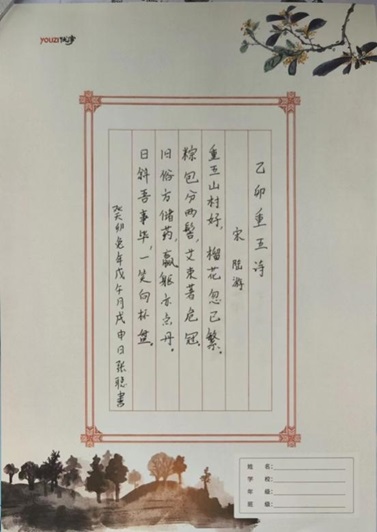 YOUZI优字
乙卯重五诗
宋 陆游
重五山村好，榴花忽已繁。
粽包分两髻，艾束著危冠。
旧俗方储药，羸躯亦点丹。
日斜吾事毕，一笑向杯盘。
癸卯兔年戊午月戊申日张聪书
姓 名：
学 校：
年 级：
班 级：